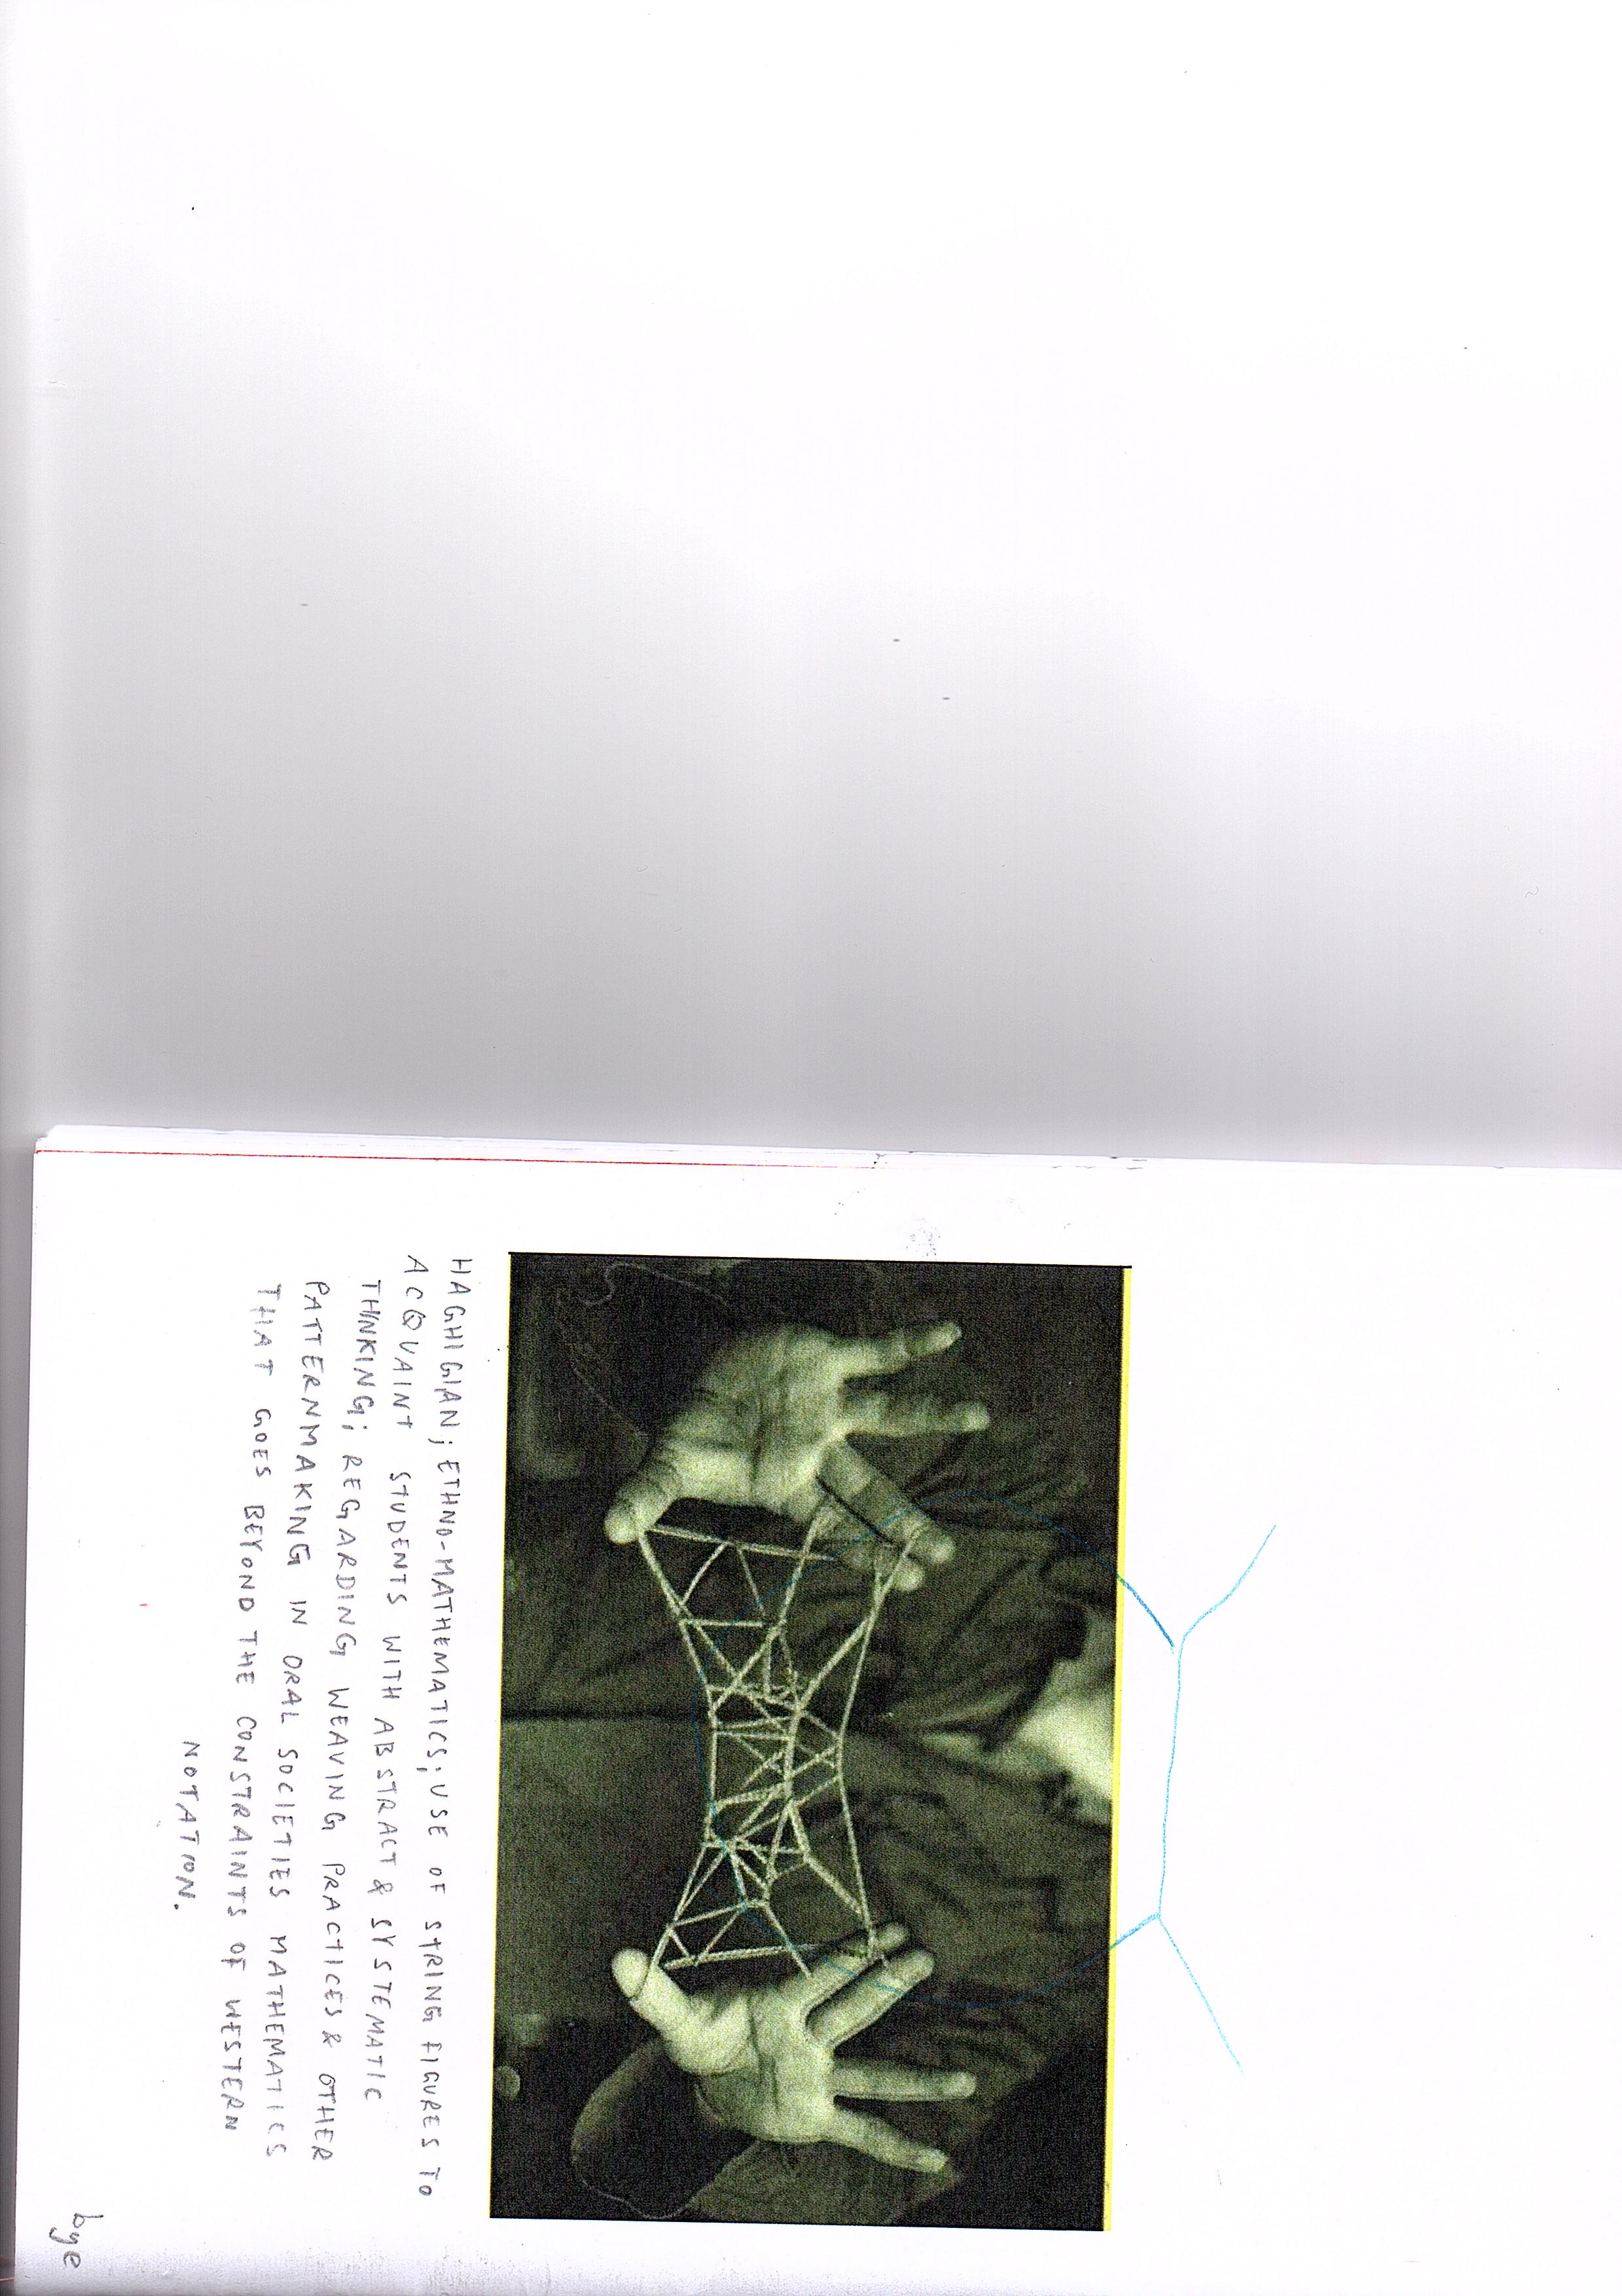 HAGHIGIAN; ETHNO-MATHEMATICS; USE OF STRING FIGURES TO
ACQUAINT STUDENTS WITH ABSTRACT & SYSTEMATIC
THINKING; REGARDING WEAVING PRACTICES & OTHER
PATTERNMAKING IN ORAL SOCIETIES MATHEMATICS
THAT GOES BEYOND THE CONSTRAINTS OF WESTERN
NOTATION.
bye